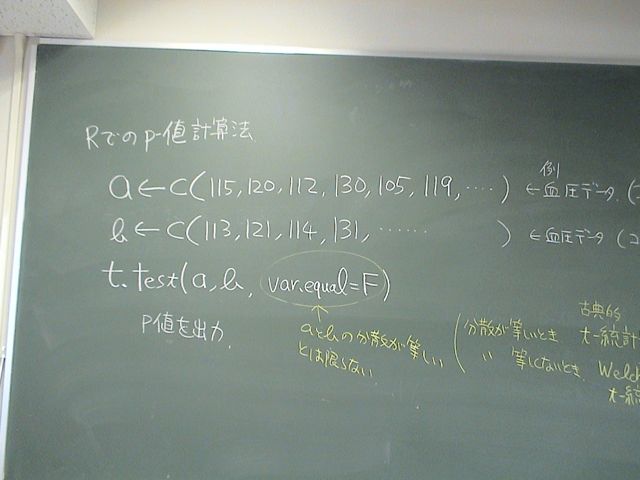 Rでのp-値計算法
例
a←c(115,120,112,130,105,119,‥‥) ←血圧データ(
b←c(113,121,114,131,‥‥‥ ) ←血圧データ(
t.test(a,b, var.equal=F)
P値を出力
aとbの分散が等しい
とは限らない
(分散が等しいとき
〃 等しくないとき
古典的
t-統計
Welch
t-統